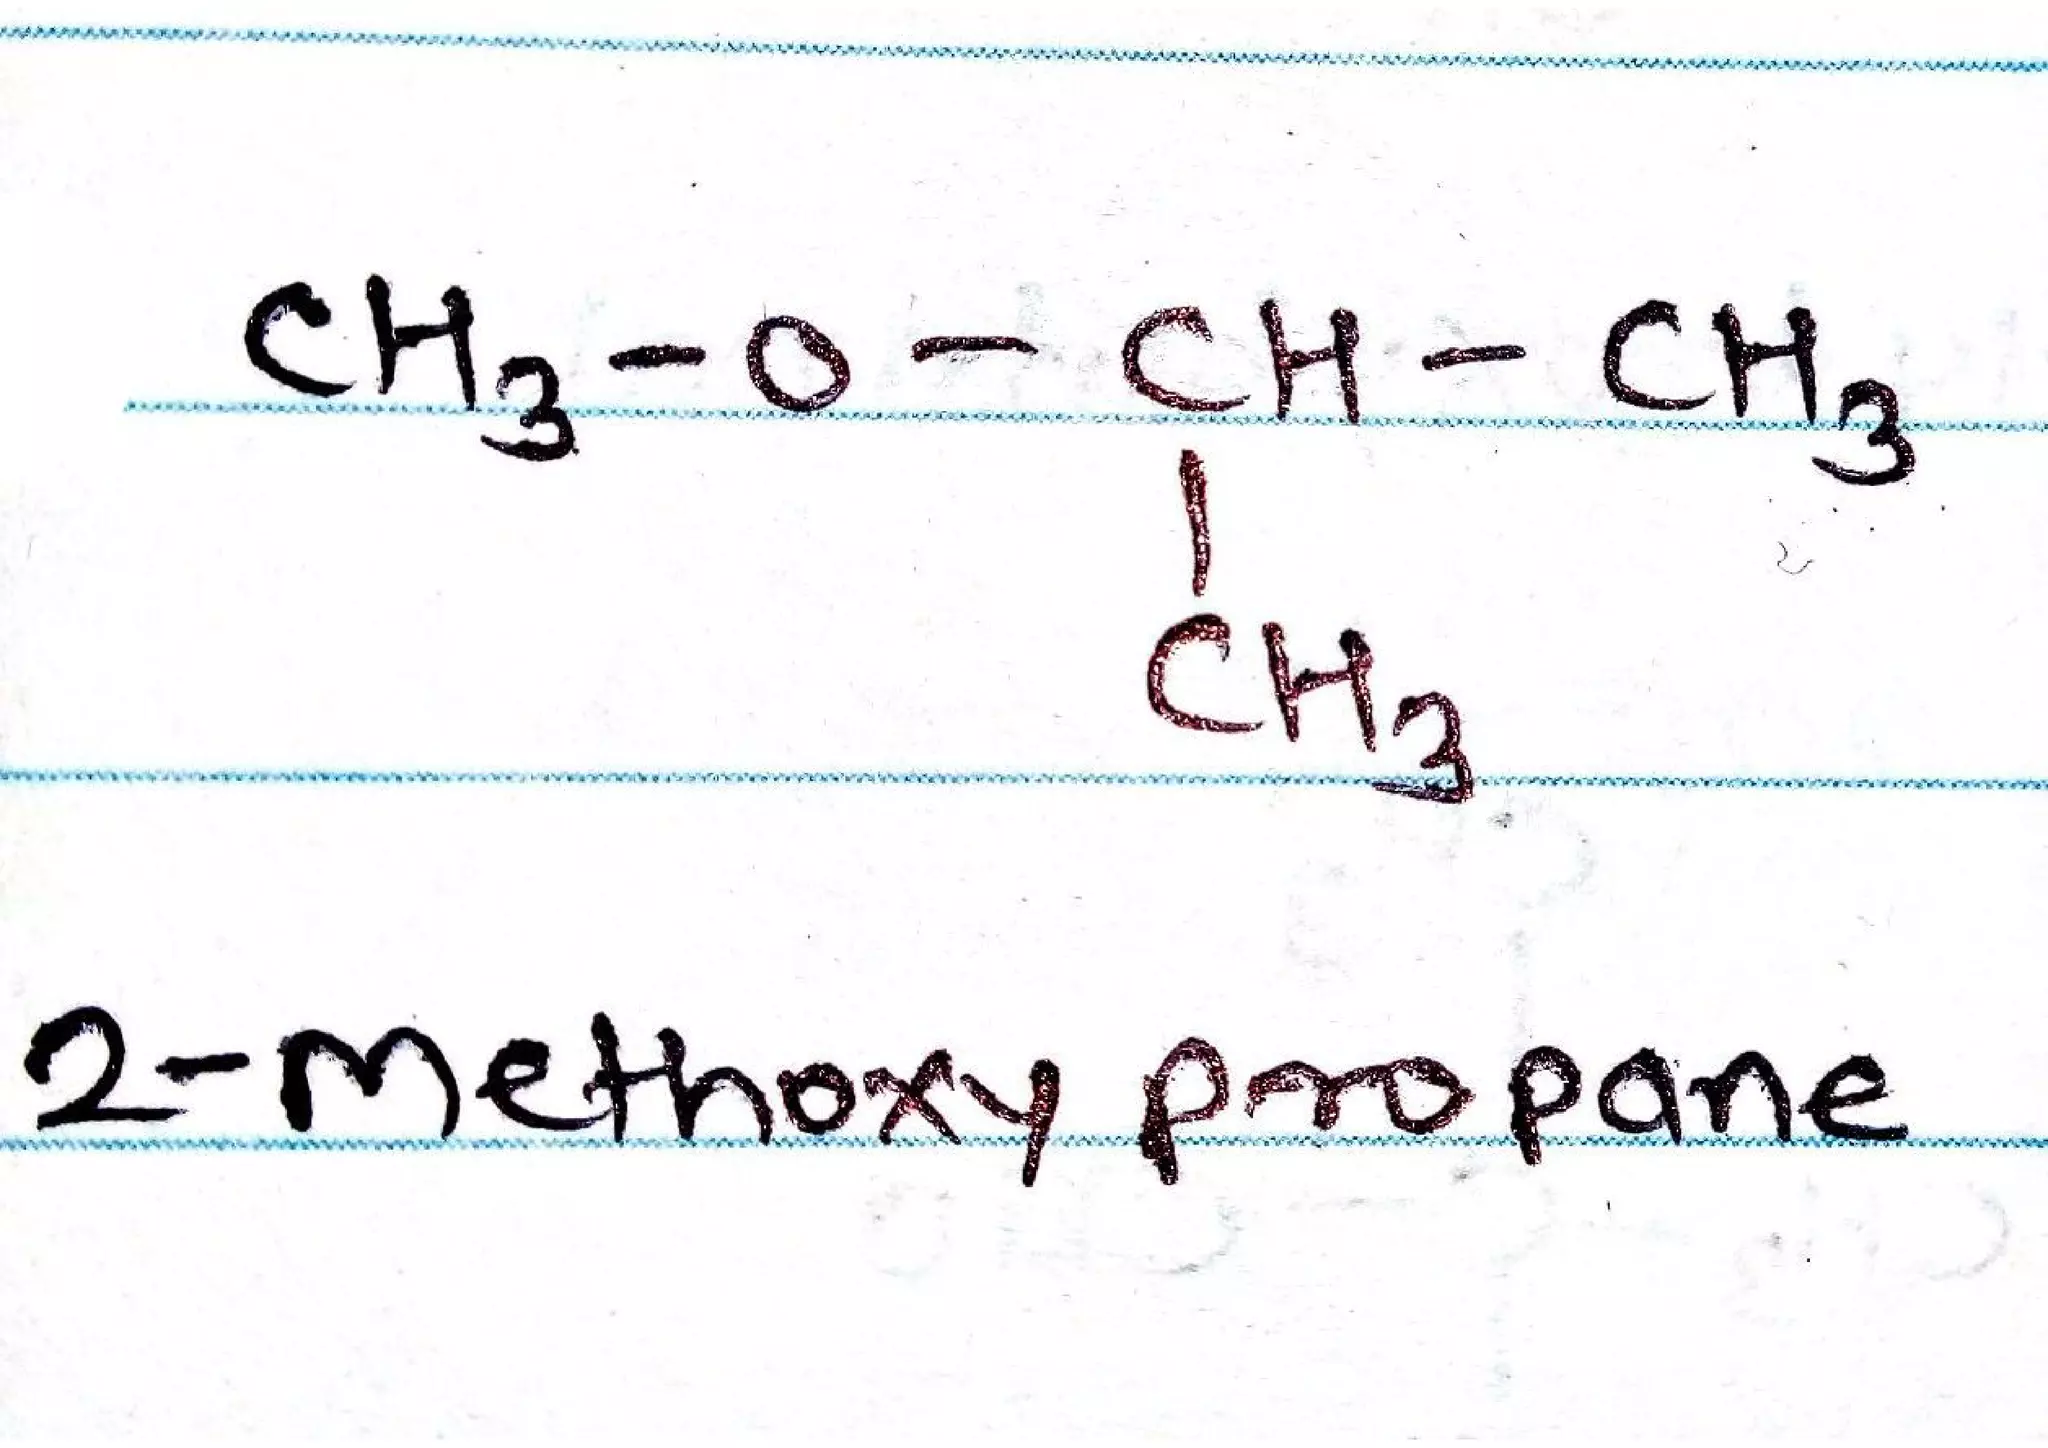 CH₃-O-CH-CH₃
|
CH₃
2-Methoxy propane